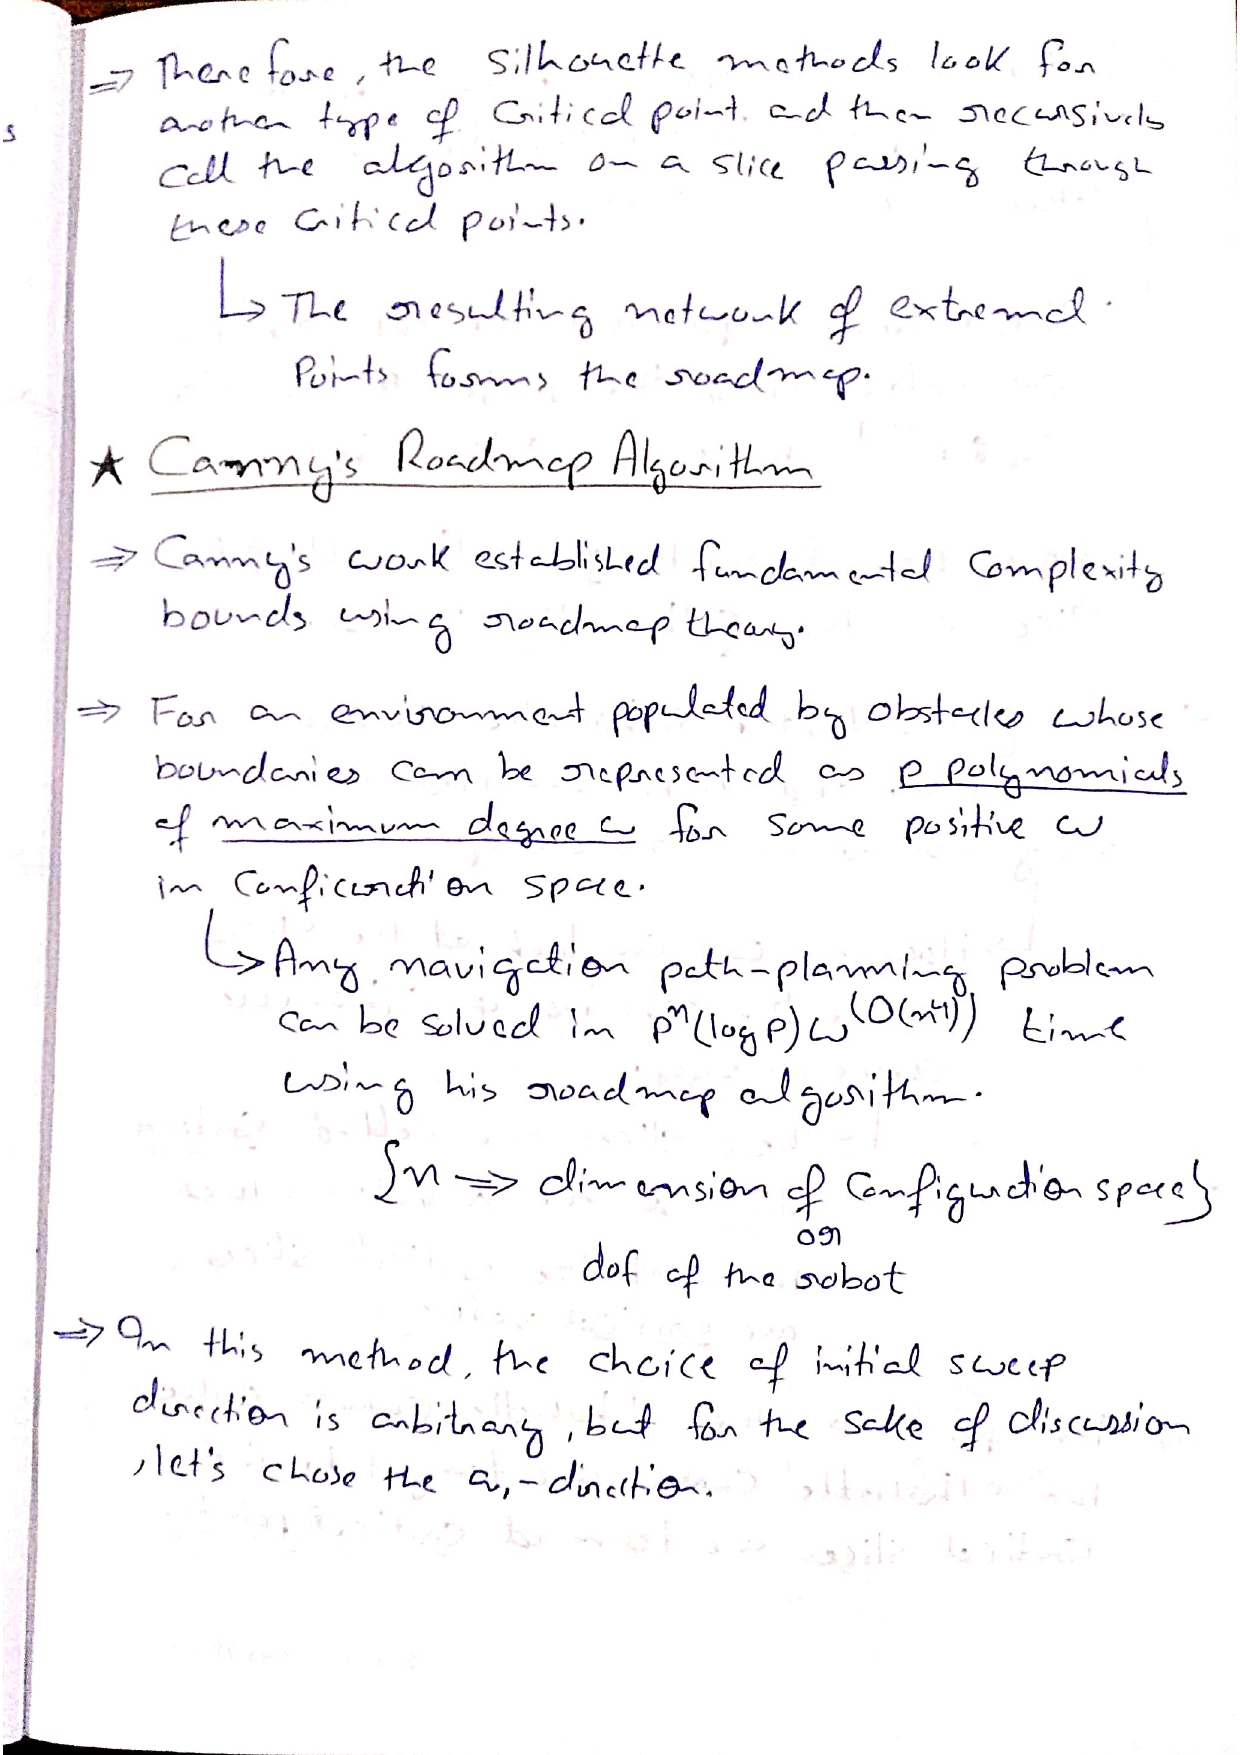 s
⇒ Therefore, the silhouette methods look for
another type of Critical point. and then recursively
Call the algorithm on a slice passing through
these Critical points.
↳ The resulting network of extremal
Points forms the roadmap.
★ Canny's Roadmap Algorithm
⇒ Canny's work established fundamental Complexity
bounds using roadmap theory.
⇒ For an environment populated by obstacles whose
boundaries can be represented as p polynomials
of maximum degree w for some positive w
in Configuration space.
↳ Any navigation path-planning problem
can be solved in pⁿ(log p) w^(O(n⁴)) time
using his roadmap algorithm.
{n ⇒ dimension of Configuration space}
or
dof of the robot
⇒ In this method, the choice of initial sweep
direction is arbitrary, but for the sake of discussion
, let's chose the q₁-direction.